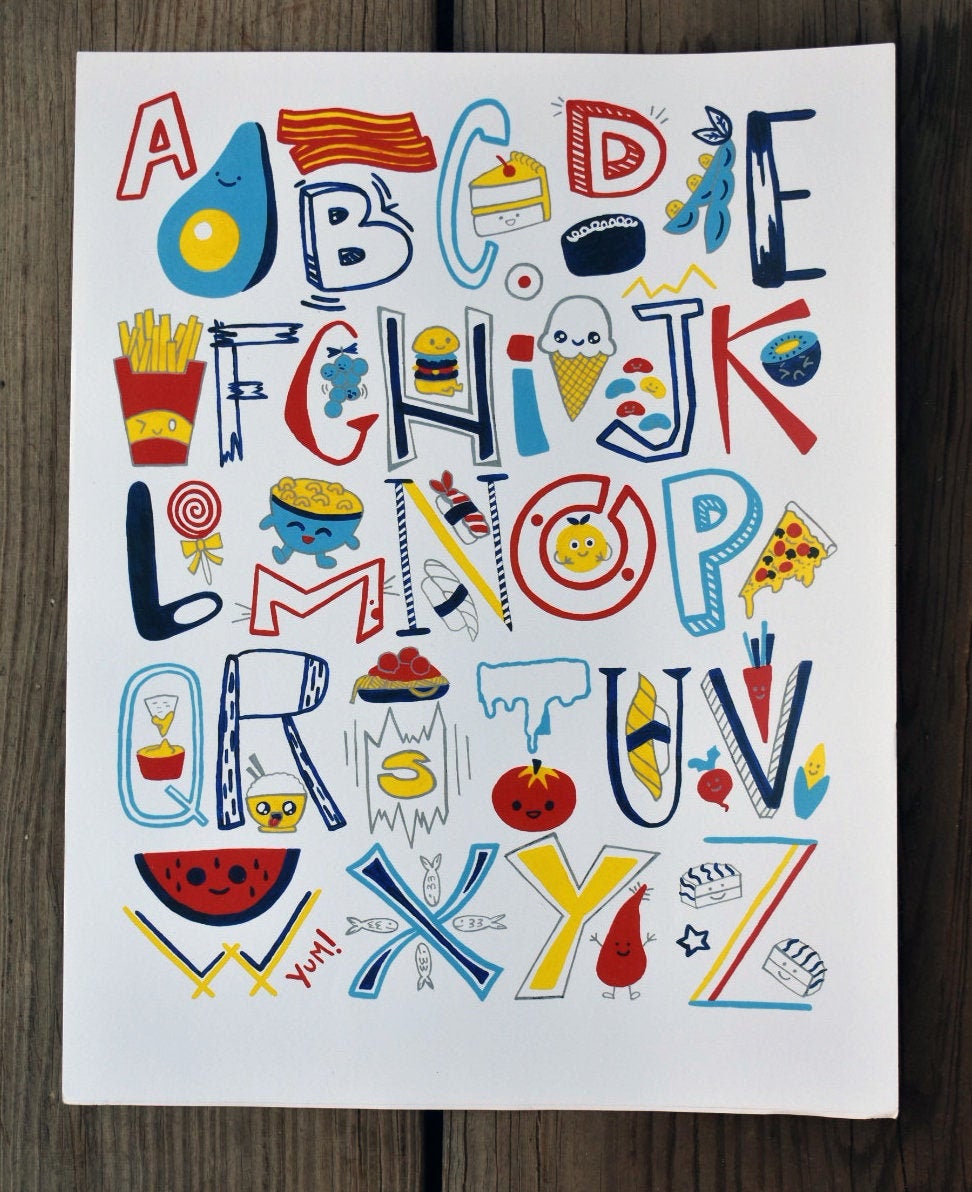 A B C D E
F G H i J K
L M N O P
Q R S T U V
W YUM! X Y Z